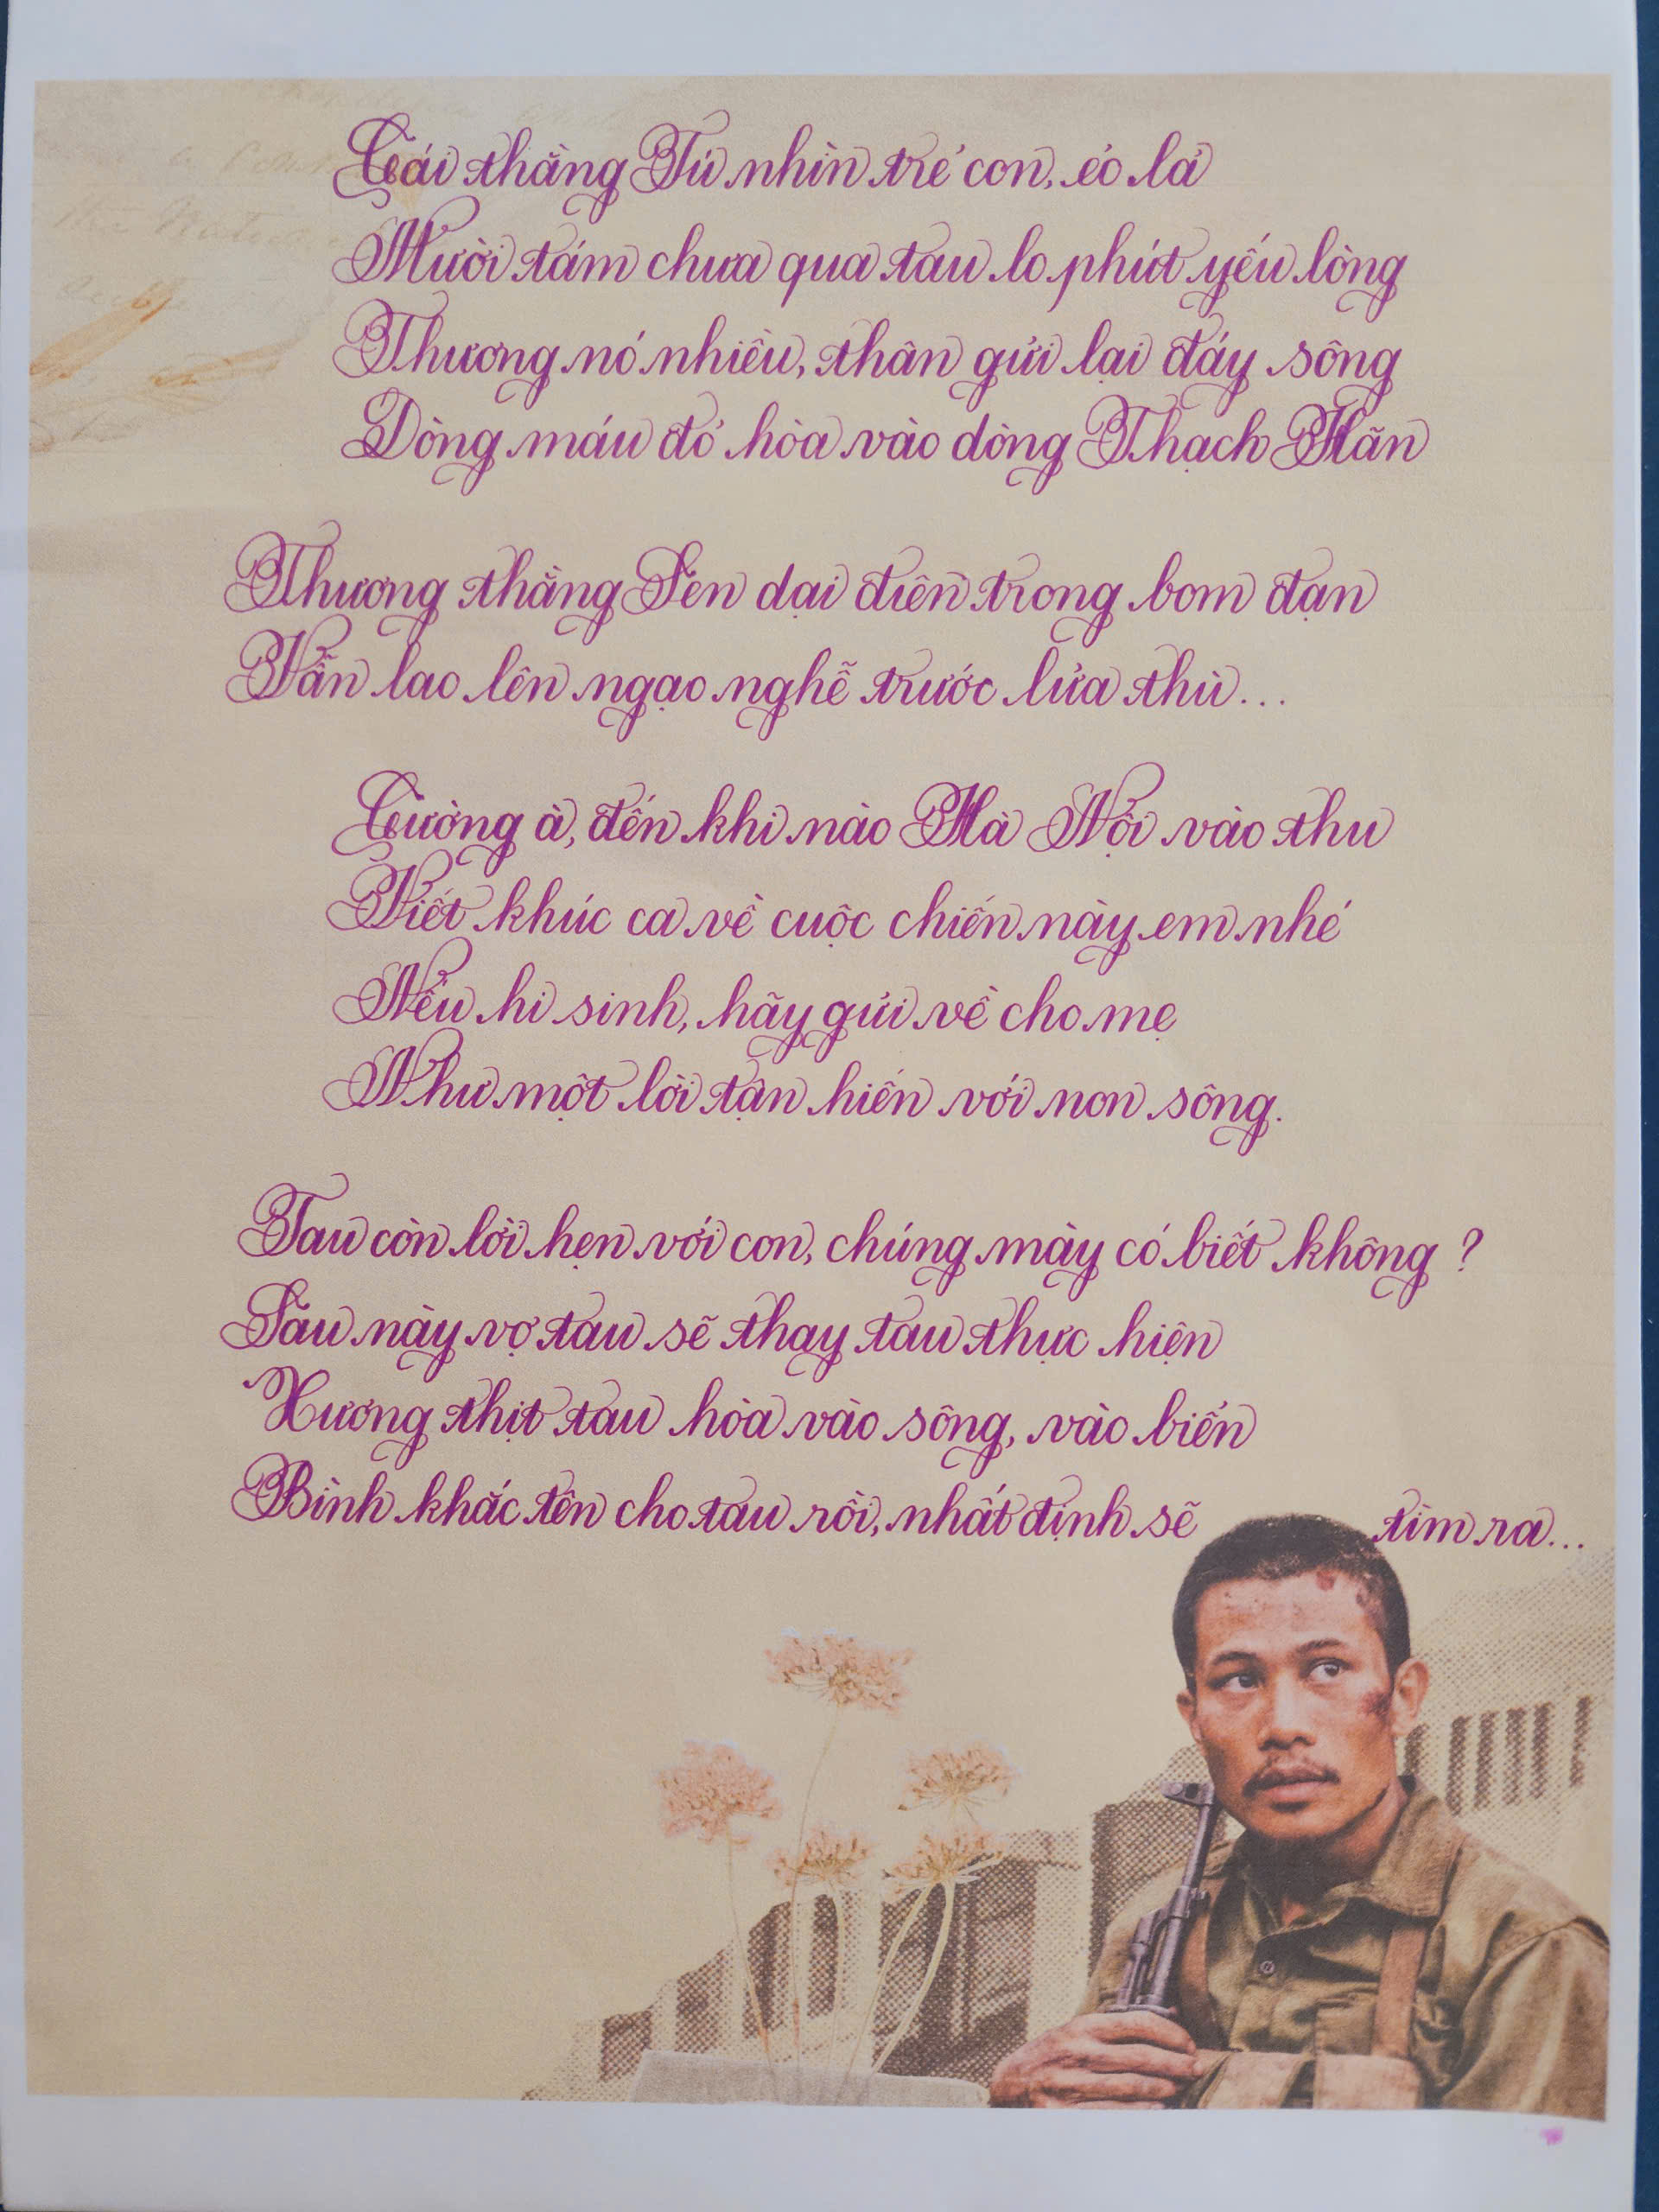 Cái thằng Tú nhìn trẻ con, ẻo lả
Mười tám chưa qua tau lo phút yếu lòng
Thương nó nhiều, thân gửi lại đáy sông
Dòng máu đỏ hòa vào dòng Thạch Hãn
Thương thằng Sen dại điên trong bom đạn
Vẫn lao lên ngạo nghễ trước lửa thù...
Cường à, đến khi nào Hà Nội vào thu
Viết khúc ca về cuộc chiến này em nhé
Nếu hi sinh, hãy gửi về cho mẹ
Như một lời tận hiến với non sông.
Tau còn lời hẹn với con, chúng mày có biết không ?
Sau này vợ tau sẽ thay tau thực hiện
Xương thịt tau hòa vào sông, vào biển
Bình khắc tên cho tau rồi, nhất định sẽ tìm ra...